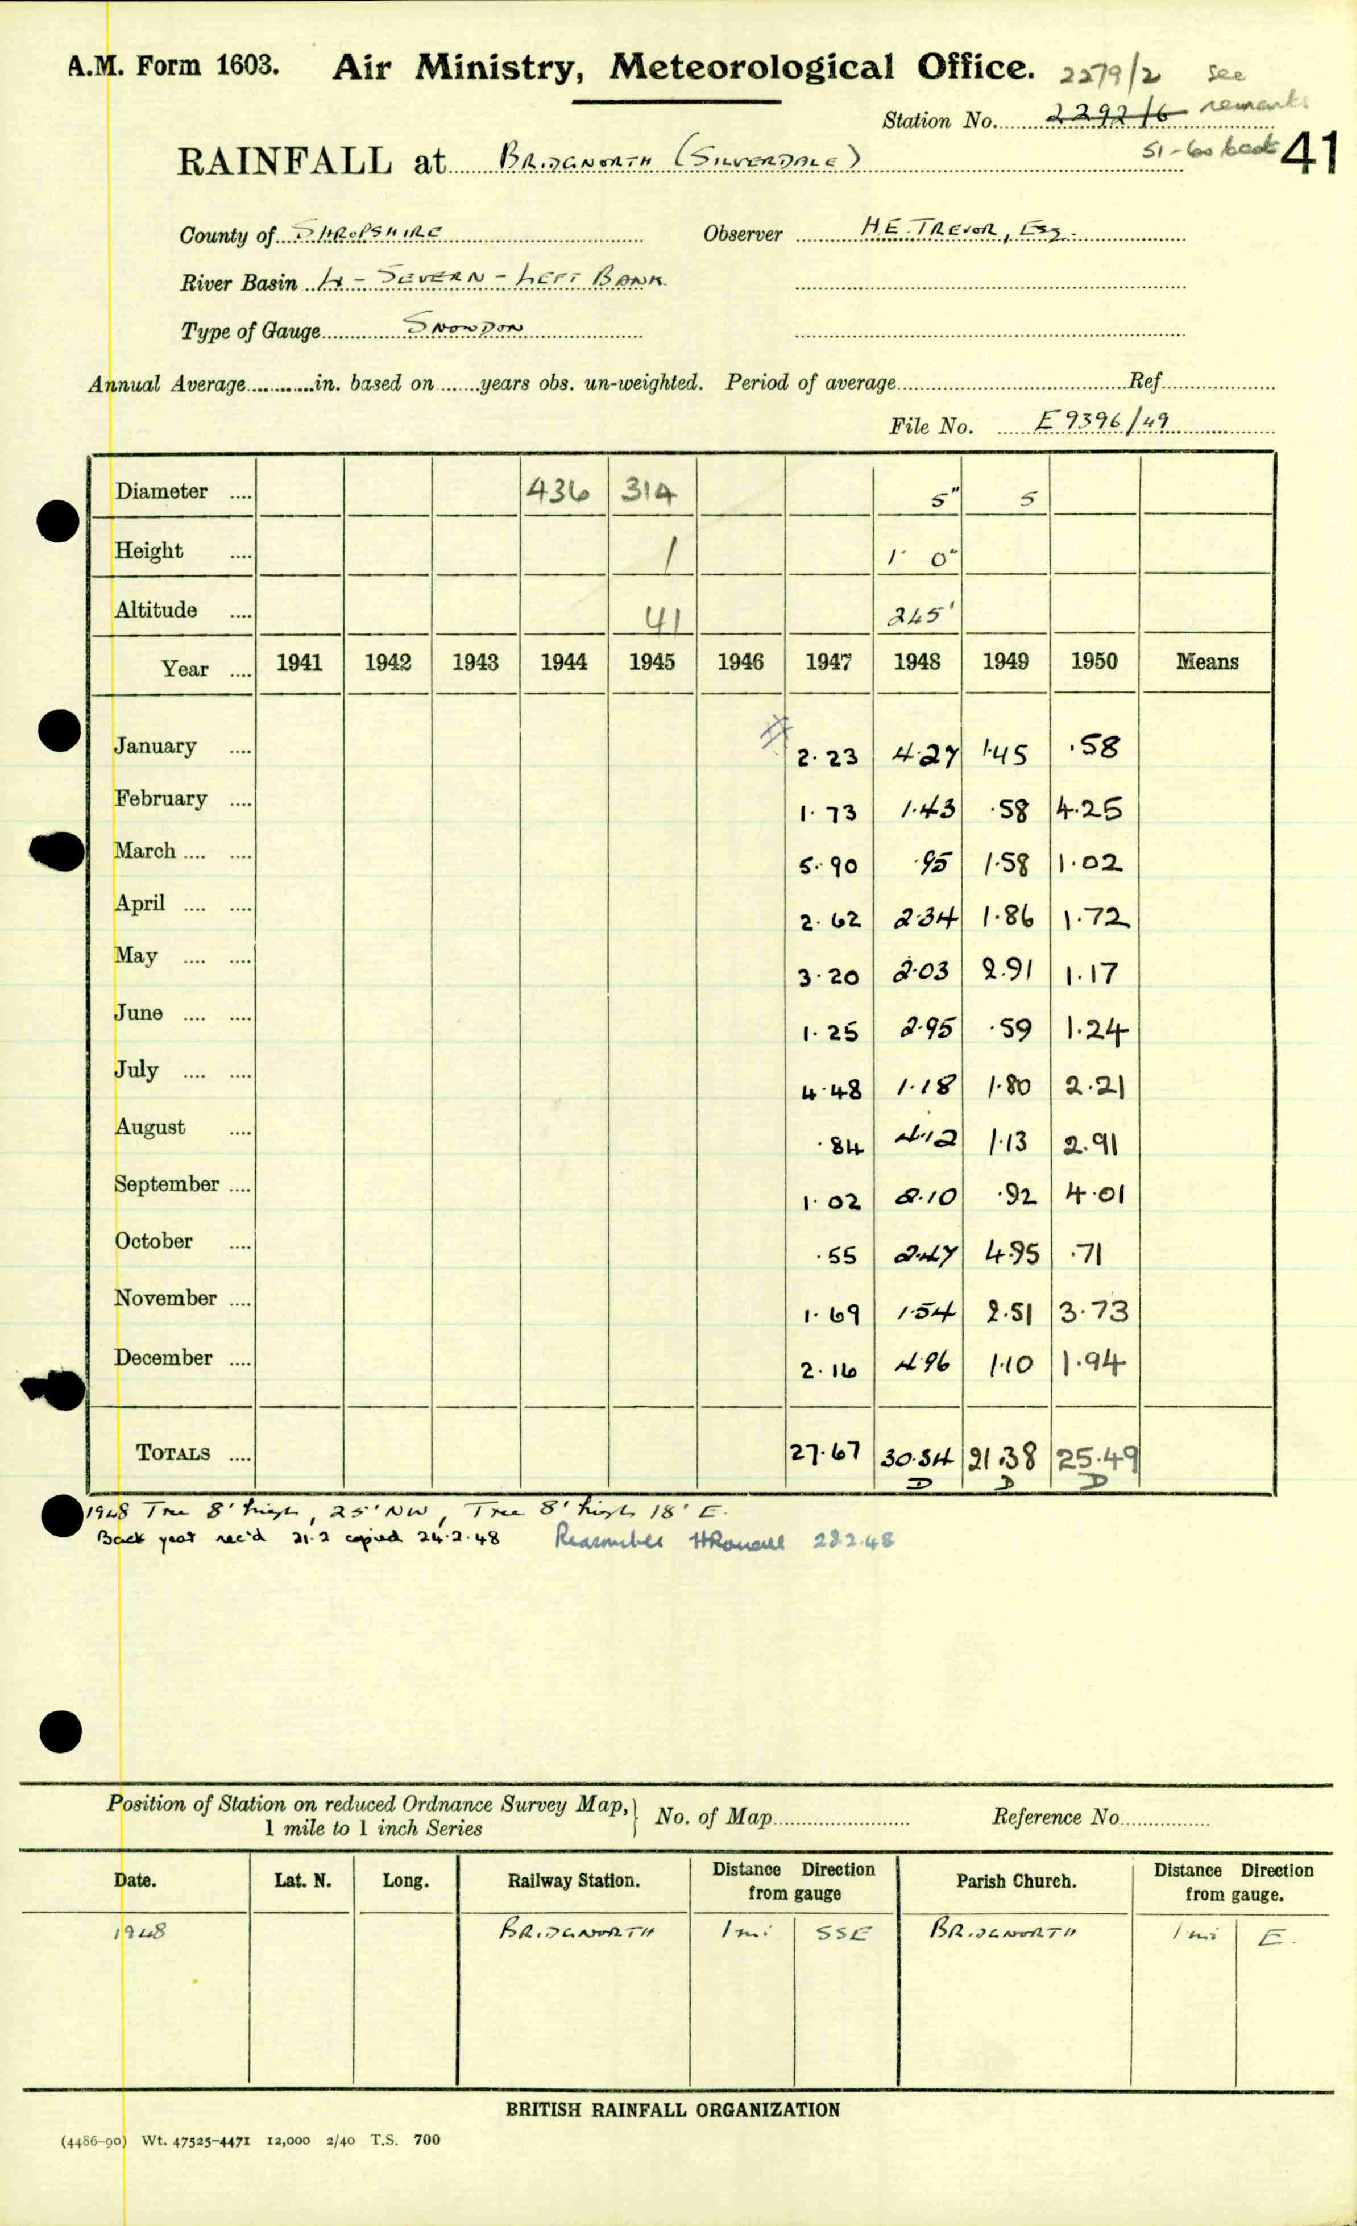 A.M. Form 1603. Air Ministry, Meteorological Office. 2279/2 see
Station No. 2292/6 remarks
RAINFALL at BRIDGNORTH (SILVERDALE) 51-60 book 41
County of SHROPSHIRE Observer H.E. TREVOR, Esq.
River Basin H - SEVERN - LEFT BANK
Type of Gauge SNOWDON
Annual Average in. based on years obs. un-weighted. Period of average Ref.
File No. E9396/49
Diameter 436 314 5" 5
Height 1 1' 0"
Altitude 41 245'
Year 1941 1942 1943 1944 1945 1946 1947 1948 1949 1950 Means
January # 2.23 4.27 1.45 .58
February 1.73 1.43 .58 4.25
March 5.90 .95 1.58 1.02
April 2.62 2.34 1.86 1.72
May 3.20 2.03 2.91 1.17
June 1.25 2.95 .59 1.24
July 4.48 1.18 1.80 2.21
August .84 4.12 1.13 2.91
September 1.02 2.10 .92 4.01
October .55 2.47 4.95 .71
November 1.69 1.54 2.51 3.73
December 2.16 4.96 1.10 1.94
TOTALS 27.67 30.34 21.38 25.49
D D D
1948 Tree 8' high, 25' NW, Tree 8' high 18' E.
Back year rec'd 21.2 copied 24.2.48 28.2.48
Position of Station on reduced Ordnance Survey Map, 1 mile to 1 inch Series } No. of Map Reference No.
Date. Lat. N. Long. Railway Station. Distance Direction from gauge Parish Church. Distance Direction from gauge.
1948 BRIDGNORTH 1 mi SSE BRIDGNORTH 1 mi E.
BRITISH RAINFALL ORGANIZATION
(4486-90) Wt. 47525-4471 12,000 2/40 T.S. 700